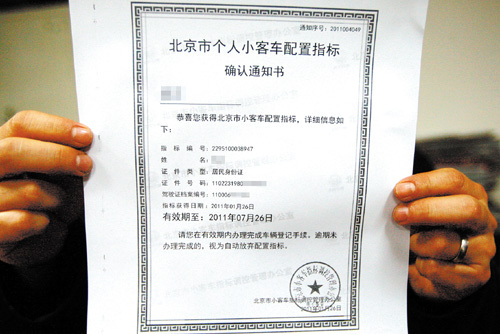 通知序号:2011004049
北京市个人小客车配置指标
确认通知书
恭喜您获得北京市小客车配置指标。详细信息如
下:
指 标 编 号: 2295100038947
姓 名:
证 件 类 型: 居民身份证
证 件 号 码: 1102231982
驾驶证档案编号: 110006
指标获得日期: 2011年01月26日
有效期至: 2011年07月26日
请您在有效期内办理完成车辆登记手续。逾期未
办理完成的,视为自动放弃配置指标。
北京市小客车指标调控管理办公室
2011年01月26日